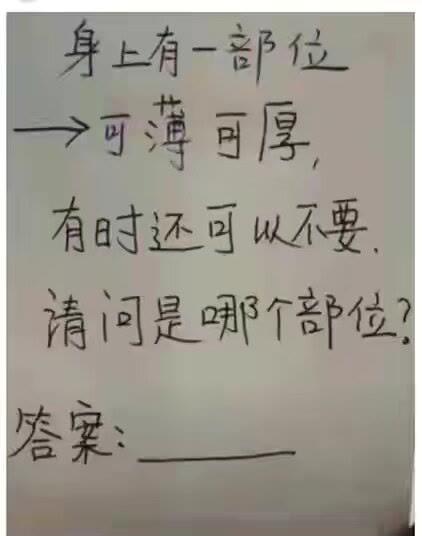 身上有一部位
→可薄可厚，
有时还可以不要．
请问是哪个部位？
答案：______